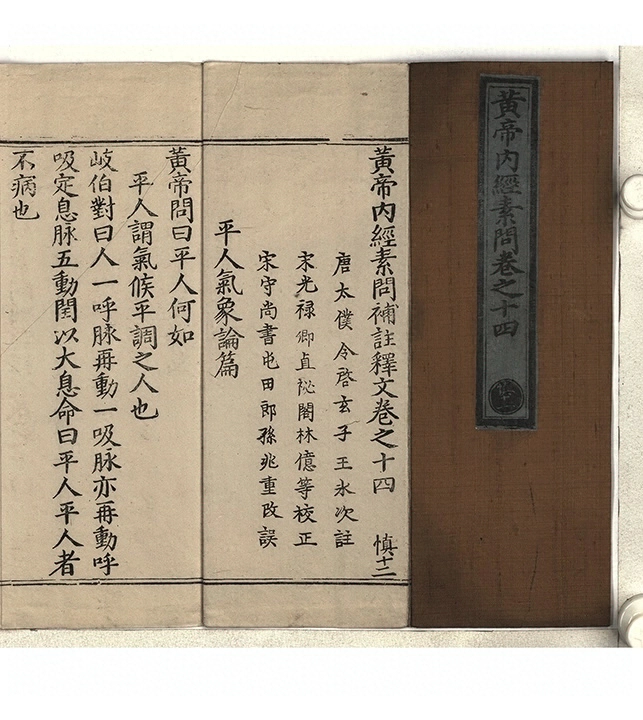 黃帝內經素問卷之十四
黃帝內經素問補註釋文卷之十四 慎十二
唐太僕令啓玄子王氷次註
宋光禄卿直祕閣林億等校正
宋守尚書屯田郎孫兆重改誤
平人氣象論篇
黃帝問曰平人何如
平人謂氣候平調之人也
岐伯對曰人一呼脉再動一吸脉亦再動呼
吸定息脉五動閏以大息命曰平人平人者
不病也